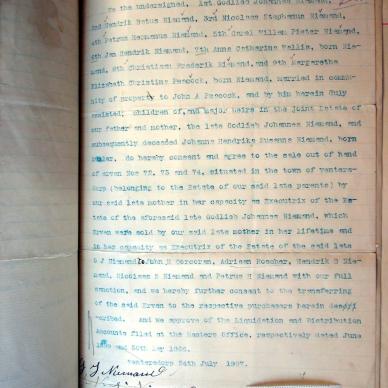 We the undersigned, 1st Godlieb Johannes Niemand,
2nd Hendrik Petus Niemand, 3rd Nicolaas Stephanus Niemand,
4th Petrus Hermanus Niemand, 5th Carel Willem Pieter Niemand,
6th Jan Hendrik Niemand, 7th Anna Catharina Wallis, born Nie-
mand, 8th Christiaan Frederik Niemand, and 9th Margaretha
Elizabeth Christina Peacock, born Niemand, married in commu-
nity of property to John A Peacock, and by him herein duly
assisted; children of, and major heirs in the Joint Estate of
our father and mother, the late Godlieb Johannes Niemand, and
subsequently deceased Johanna Hendrika Susanna Niemand, born
do hereby consent and agree to the sale out of hand
of erven Nos 72, 73 and 74, situated in the town of Venters-
dorp (belonging to the Estate of our said late parents) by
our said late mother in her capacity as Executrix of the Es-
tate of the aforesaid late Godlieb Johannes Niemand, which
Erven were sold by our said late mother in her lifetime and
in her capacity as Executrix of the Estate of the said late
G J Niemand to John M Corcoran, Adriaan Boscher, Hendrik B Nie-
mand, Nicolaas S Niemand and Petrus H Niemand with our full
sanction, and we hereby further consent to the transferring
of the said Erven to the respective purchasers herein des-
cribed. And we approve of the Liquidation and Distribution
Accounts filed at the Masters Office, respectively dated June
and 30th May 1906.
Ventersdorp 24th July 1907.
G J Niemand